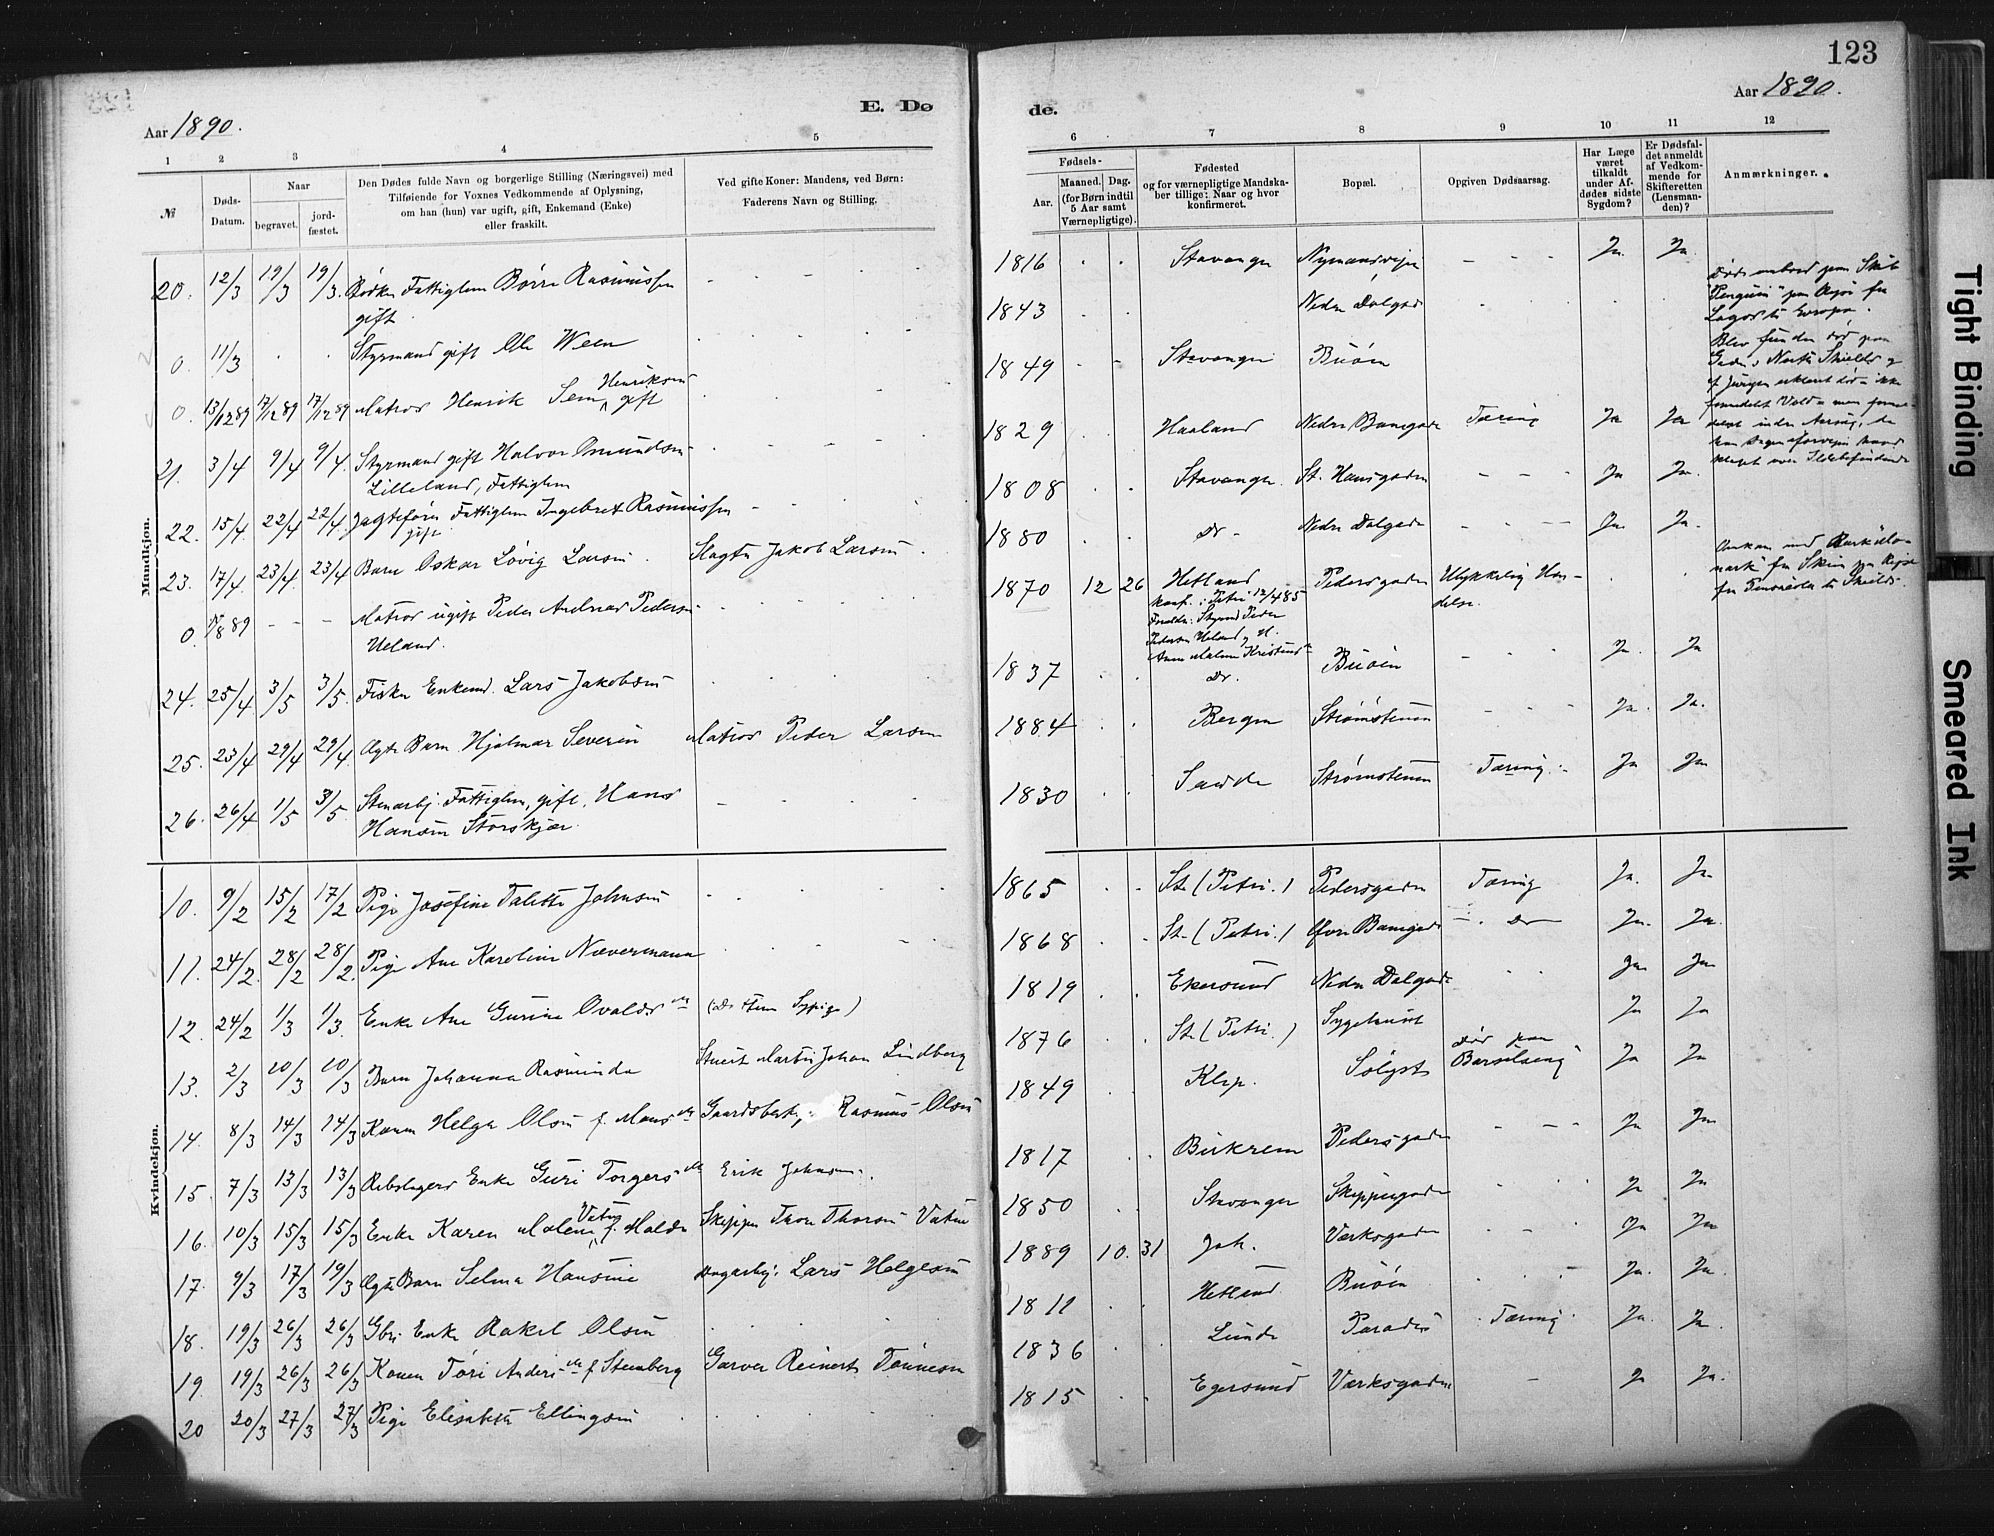 123
Aar 1890.
E. Dø
de.
Aar 1890.
1 2 3 4 5
6 7 8 9 10 11 12
№
Døds-Datum.
Naar
begravet.
jord-fæstet.
Den Dødes fulde Navn og borgerlige Stilling (Næringsvei) med
Tilføiende for Voxnes Vedkommende af Oplysning,
om han (hun) var ugift, gift, Enkemand (Enke)
eller fraskilt.
Ved gifte Koner: Mandens, ved Børn:
Faderens Navn og Stilling.
Fødsels-
Aar.
Maaned. Dag.
(for Børn indtil
5 Aar samt
Værnepligtige).
Fødested
og for værnepligtige Mandska-
ber tillige: Naar og hvor
konfirmeret.
Bopæl.
Opgiven Dødsaarsag.
Har Læge
været
tilkaldt
under Af-
dødes sidste
Sygdom?
Er Dødsfal-
det anmeldt
af Vedkom-
mende for
Skifteretten
(Lensman-
den)?
Anmærkninger.
Mandkjøn.
20. 12/3 19/3 19/3. Fattiglem Børre Rasmussen
gift
1816 Stavanger Ja. Ja.
0. 11/3 Styrmand gift Ole Ween
1843 Nedre Dalgade
0. 13/12 89 17/12 89 17/12 89 Matros Henrik Sem Henriksen gift
1849 Stavanger Buøen
21. 3/4 9/4 9/4. Styrmand gift Halvor Omundsen
Lilleland, Fattiglem
1829 Haaland Nedre Banegade Tæring Ja Ja
22. 15/4 22/4 22/4. Jagtefører Fattiglem Ingebret Rasmussen
gift
1808 Stavanger. St. Hansgaden Ja Ja.
23. 17/4. 23/4. 23/4 Barn Oskar Løvig Larsen. Slagter Jakob Larsen.
1880 Do- Nedre Dalgade Ja. Ja.
0. 8 89 Matros ugift Peder Andreas Pedersen
Ueland.
1870 12 26 Hetland Pedersgaden Ulykkelig Hæn-
delse.
konf. i Petri 12/4 85
24. 25/4 3/5 3/5. Fisker Enkemd. Lars Jakobsen
1837 Do. Buøen Ja. Ja
25. 23/4 29/4 29/4. Ægte Barn Hjalmar Severin Matros Peder Larsen
1884 Bergen Strømstenen Ja. Ja.
26. 26/4 1/5 3/5. Stenarbj. Fattiglem, gift, Hans
Hansen Storskjær.
1830 Sande Strømstenen Tæring. Ja Ja
Død ombord paa Skib
"Penguin" paa Reise fra
Lagos til Europa.
Blev funden død paa
North Shields
Kvindekjøn.
10. 9/2 15/2 17/2 Pige Josefine Talette Johnsen
1865 St. (Petri.) Pedersgaden Tæring Ja. Ja.
11. 24/2. 28/2 28/2. Pige Ane Karoline Nævermann
1868 St. (Petri.) Øvre Banegade Do Ja. Ja.
12. 24/2 1/3 1/3. Enke Ane Gurine Ovaldsdr
1819 Ekersund Nedre Dalgade Ja. Ja.
13. 2/3 10/3 10/3 Barn Johanna Rasminda Stuert Martin Johan Lindberg
1876 St. (Petri.) Sygehuset Ja Ja
14. 8/3 14/3 14/3 Konen Helga Olsen f. Mons Dr Gaardsbest. Rasmus Olsen
1849 Klep. Sølyst Død paa
Barselseng Ja Ja
15. 7/3 13/3 13/3 Rebslagers Enke Guri Torgers Dr Erik Johnsen.
1817 Birkrem Pedersgaden Ja Ja
16. 10/3 15/3 15/3 Enke Karen Malene Vatne f. Malde Skipper Thore Thorsen Vatne
1850 Stavanger Skippergaden Ja Ja
17. 9/3 17/3 19/3 Ægte Barn Selma Hansine Lars Helgesen
1889 10. 31 Joh. Værksgaden Ja Ja
18. 19/3 26/3 26/3 Enke Rakel Olsen
1811 Hetland Buøen Ja. Ja.
19. 19/3 26/3 26/3 Konen Tori Anders Dr f. Stenberg Garver Reinert Tønnesen
1836 Lunde Paradis Tæring. Ja. Ja.
20 20/3 27/3 27/3 Pige Elisabeth Ellingsen
1815 Egersund Værksgaden Ja Ja.
Tight Binding
Smeared Ink